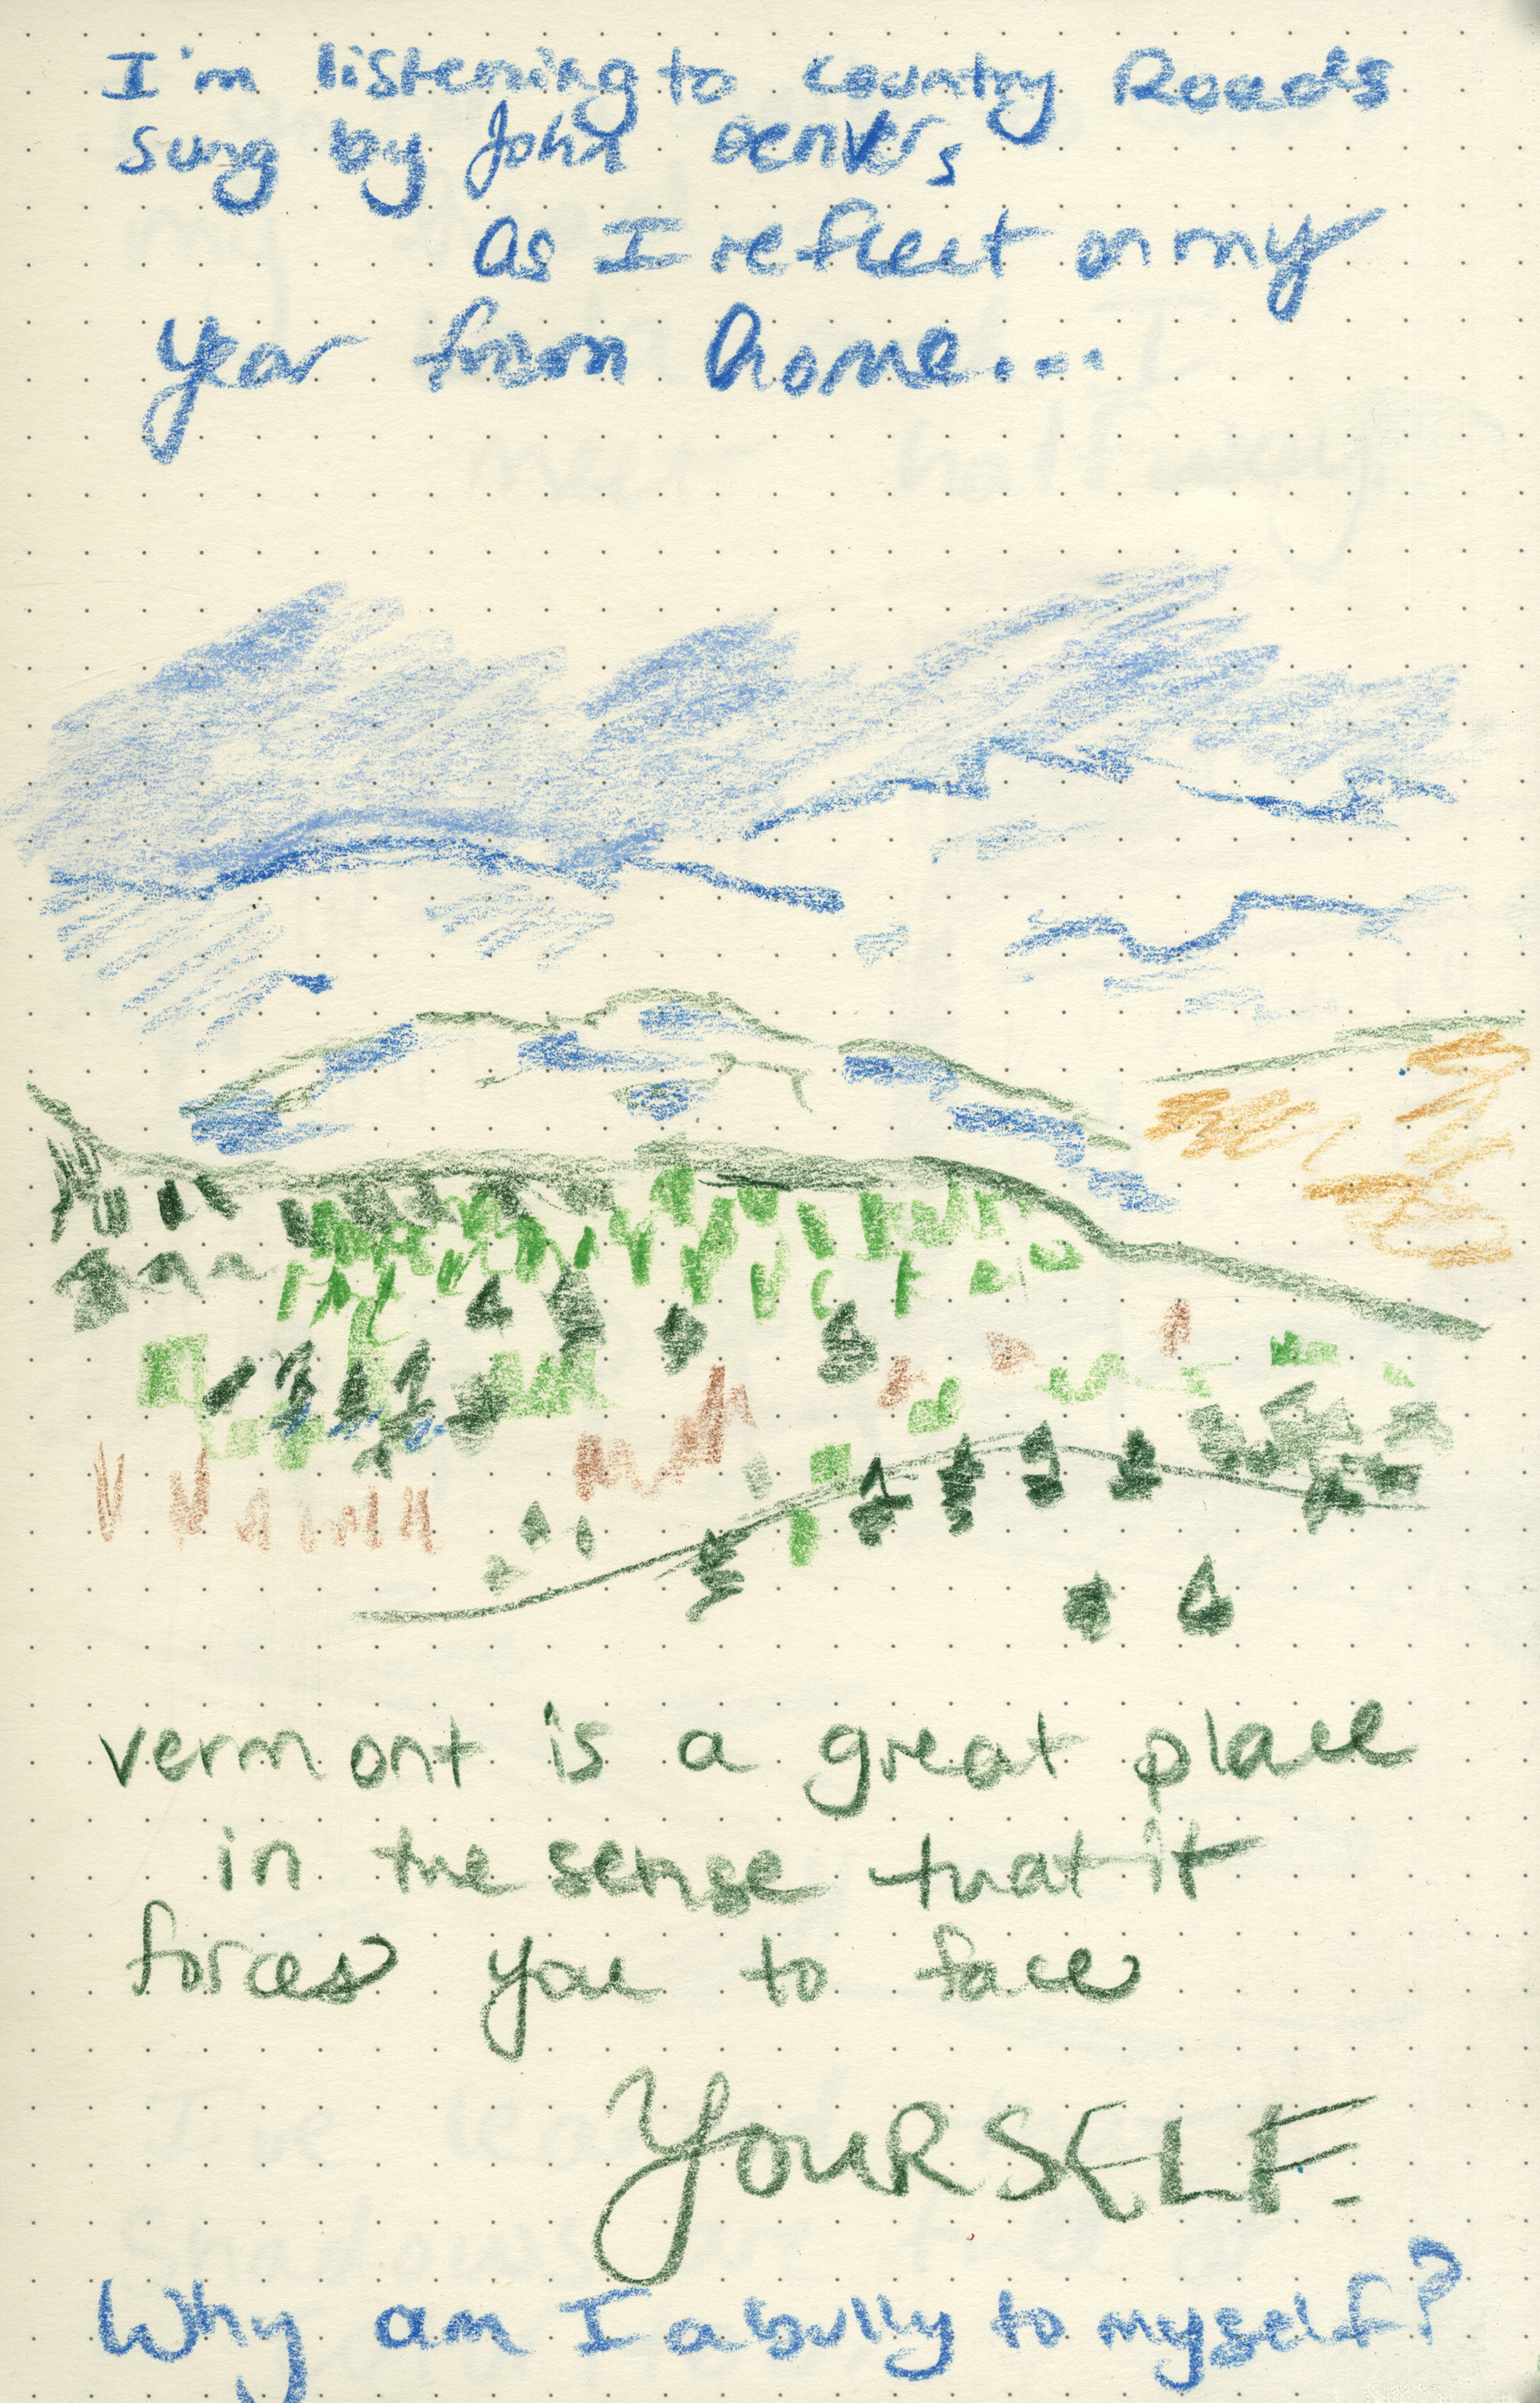 I'm listening to Country Roads
sung by John Denver,
as I reflect on my
year from home...
vermont is a great place
in the sense that it
forces you to face
YOURSELF.
Why am I a bully to myself?